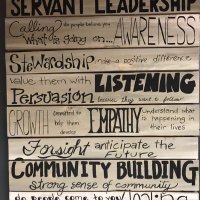 SERVANT LEADERSHIP
Calling do people believe you
What's going on... AWARENESS
Stewardship make a positive difference
value them with LISTENING
Persuasion because they want to follow
GROWTH committed to help them develop EMPATHY understand what is happening in their lives
Forsight anticipate the Future
COMMUNITY BUILDING
strong sense of community
do people come to you